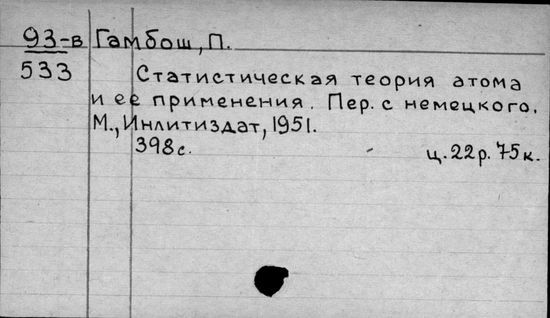 93-в Гамбош, П.
533
Статистическая теория атома
и ее применения. Пер. с немецкого.
М., Инлитиздат, 1951.
398с. ц. 22р. 75к.